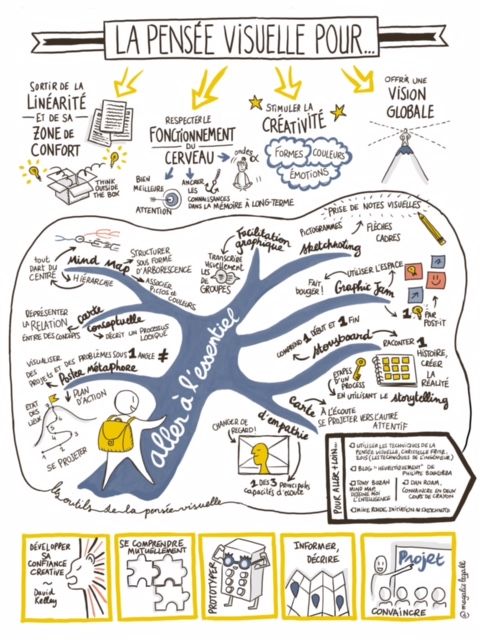 LA PENSÉE VISUELLE POUR...
SORTIR DE LA
LINÉARITÉ
ET DE SA
ZONE DE
CONFORT
THINK
OUTSIDE
THE BOX
RESPECTER LE
FONCTIONNEMENT
DU
CERVEAU
BIEN
MEILLEURE
ATTENTION
ANCRER
LES
CONNAISSANCES
DANS LA MÉMOIRE À LONG-TERME
ondes
STIMULER LA
CRÉATIVITÉ
FORMES
COULEURS
ÉMOTIONS
OFFRIR UNE
VISION
GLOBALE
PRISE DE NOTES VISUELLES
PICTOGRAMMES
FLÈCHES
CADRES
sketchnoting
Facilitation
graphique
TRANSCRIRE
VISUELLEMENT
LES
DE
GROUPES
Mind Map
TOUT
PART DU
CENTRE
HIÉRARCHIE
STRUCTURER
SOUS FORME
D'ARBORESCENCE
ASSOCIER
PICTOS ET
COULEURS
UTILISER L'ESPACE
FAIT
BOUGER!
Graphic Jam
1
PAR
POST-IT
REPRÉSENTER
LA RELATION
ENTRE DES CONCEPTS
carte
conceptuelle
DÉCRIT UN PROCESSUS
LOGIQUE
COMPREND 1 DÉBUT ET 1 FIN
storyboard
RACONTER 1
HISTOIRE,
CRÉER
LA
RÉALITÉ
ETAPES
D'UN
PROCESS
EN UTILISANT LE storytelling
VISUALISER
DES
PROJETS ET DES PROBLÈMES SOUS 1 ANGLE ≠
Poster métaphore
ETAT
DES
LIEUX
PLAN
D'ACTION
1
2
3
4
5
SE PROJETER
aller à l'essentiel
Carte
d'empathie
À L'ÉCOUTE
SE PROJETER VERS L'AUTRE
ATTENTIF
CHANGER DE
REGARD!
1 DES 3 PRINCIPALES
CAPACITÉS D'ÉCOUTE
les outils de la pensée visuelle
POUR ALLER + LOIN...
UTILISER LES TECHNIQUES DE LA
PENSÉE VISUELLE, CHRISTELLE FRITZ,
2015 (LES TECHNIQUES DE L'INGÉNIEUR)
BLOG "HEURISTIQUEMENT" DE
PHILIPPE BOUKOBZA
TONY BUZAN
MIND MAP,
DESSINE MOI
L'INTELLIGENCE
DAN ROAM,
CONVAINCRE EN DEUX
COUPS DE CRAYON
MIKE ROHDE, INITIATION AU SKETCHNOTE
DÉVELOPPER
SA
CONFIANCE
CRÉATIVE
~
David
Kelley
SE COMPRENDRE
MUTUELLEMENT
PROTOTYPER
INFORMER,
DÉCRIRE
Projet
CONVAINCRE
@magalie legall